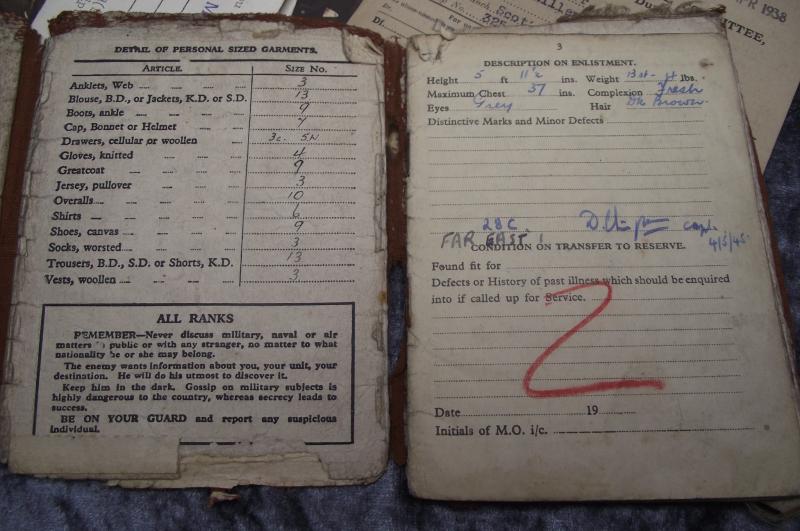 DETAIL OF PERSONAL SIZED GARMENTS.
ARTICLE. SIZE NO.
Anklets, Web 3
Blouse, B.D., or Jackets, K.D. or S.D. 13
Boots, ankle 9
Cap, Bonnet or Helmet 7
Drawers, cellular or woollen 3c. 5N
Gloves, knitted 4
Greatcoat 9
Jersey, pullover 3
Overalls 10
Shirts 6
Shoes, canvas 9
Socks, worsted 3
Trousers, B.D., S.D. or Shorts, K.D. 13
Vests, woollen 3
ALL RANKS
REMEMBER—Never discuss military, naval or air
matters in public or with any stranger, no matter to what
nationality he or she may belong.
The enemy wants information about you, your unit, your
destination. He will do his utmost to discover it.
Keep him in the dark. Gossip on military subjects is
highly dangerous to the country, whereas secrecy leads to
success.
BE ON YOUR GUARD and report any suspicious
individual.
3
DESCRIPTION ON ENLISTMENT.
Height 5 ft 11½ ins. Weight 13st lbs.
Maximum Chest 37 ins. Complexion Fresh
Eyes Grey Hair Dk Brown
Distinctive Marks and Minor Defects
28C. Capt.
FAR EAST 4/5/45
CONDITION ON TRANSFER TO RESERVE.
Found fit for
Defects or History of past illness which should be enquired
into if called up for Service.
Date 19
Initials of M.O. i/c.
Scot
325
1938
TTEE,